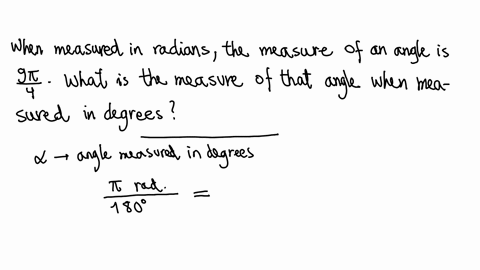 When measured in radians, the measure of an angle is
9π/4. What is the measure of that angle when mea-
sured in degrees?
α → angle measured in degrees
π rad. / 180° =